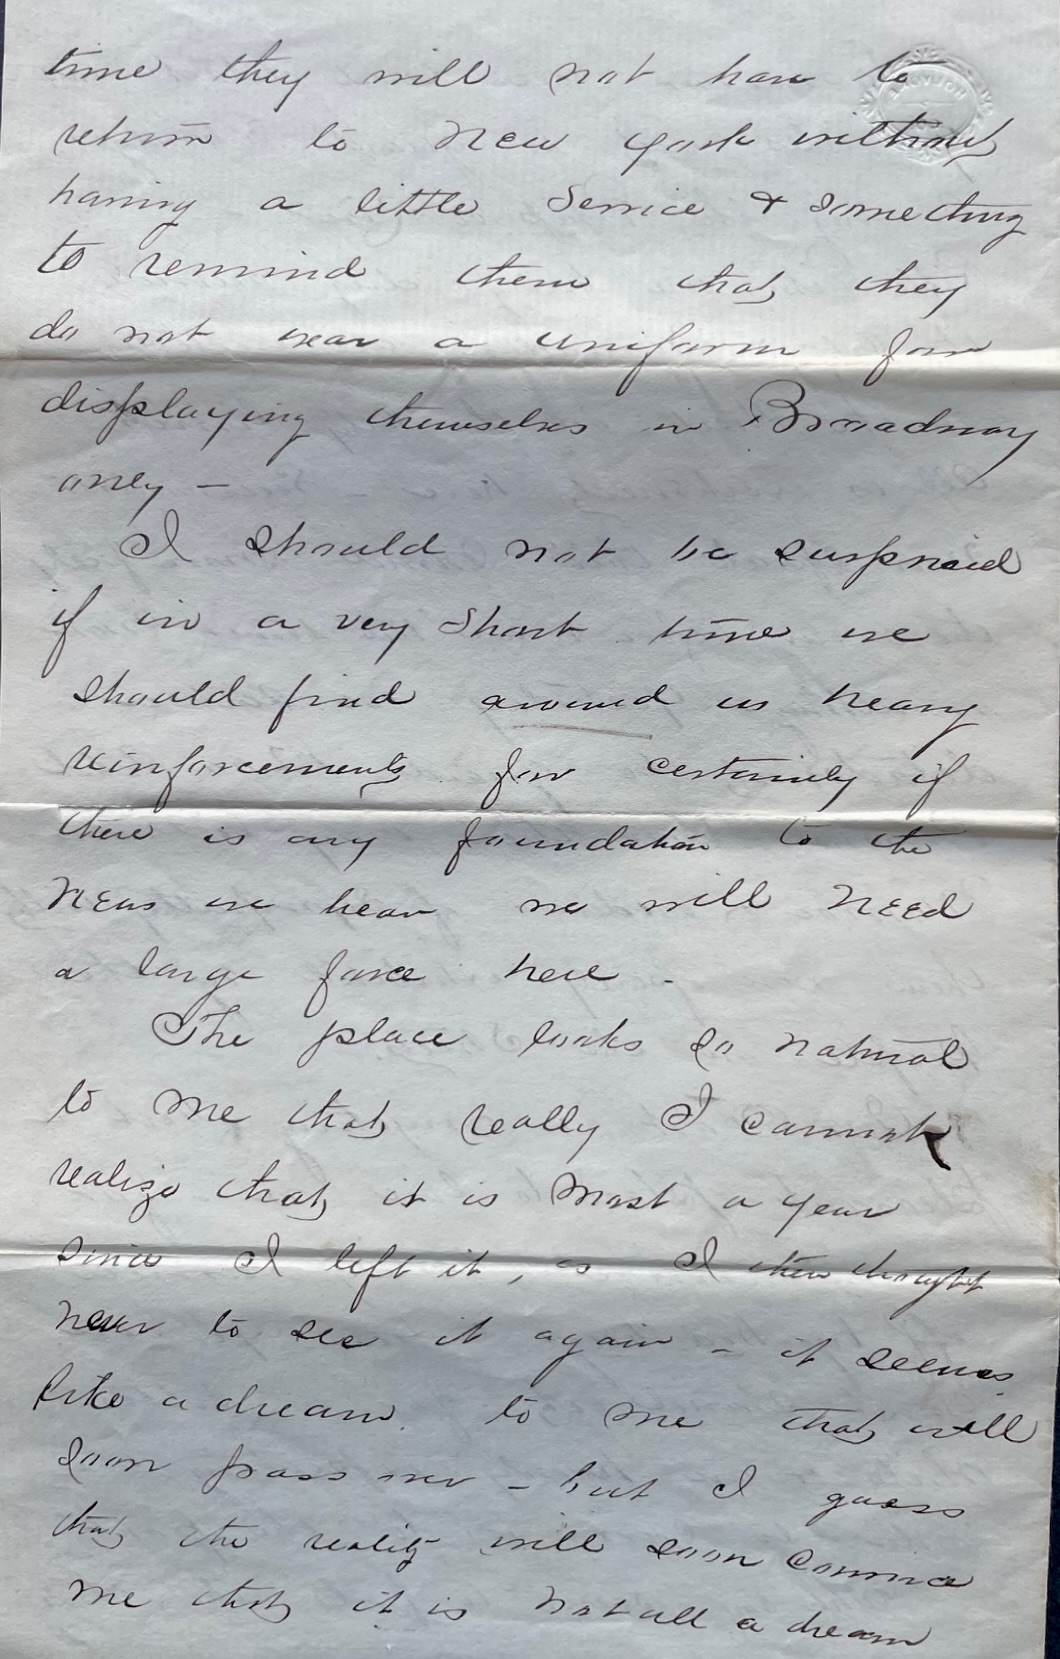 time they will not have to
return to New York without
having a little service & something
to remind them that they
do not wear a uniform for
displaying themselves in Broadway
only —
I should not be surprised
if in a very short time we
should find around us heavy
reinforcements for certainly if
there is any foundation to the
news we hear we will need
a large force here -
The place looks so natural
to me that really I cannot
realize that it is most a year
since I left it, as I then thought
never to see it again - it seems
like a dream to me that will
soon pass over - but I guess
that the reality will soon convince
me that it is not all a dream